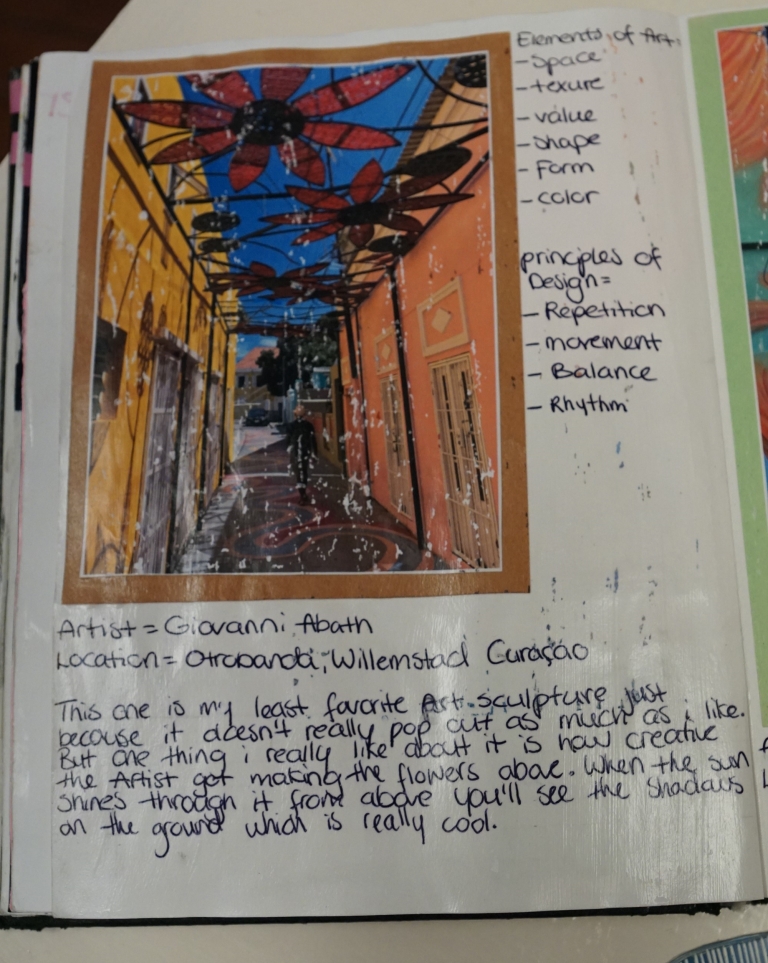 Elements of Art:
-Space
-texure
-value
-shape
-Form
-color
principles of
Design=
-Repetition
-movement
-Balance
-Rhythm
Artist = Giovanni Abath
Location = Otrobanda, Willemstad Curaçao
This one is my least favorite Art sculpture just
because it doesn't really pop out as much as i like.
But one thing i really like about it is how creative
the Artist got making the flowers above. When the sun
shines through it from above you'll see the shadows
on the ground which is really cool.